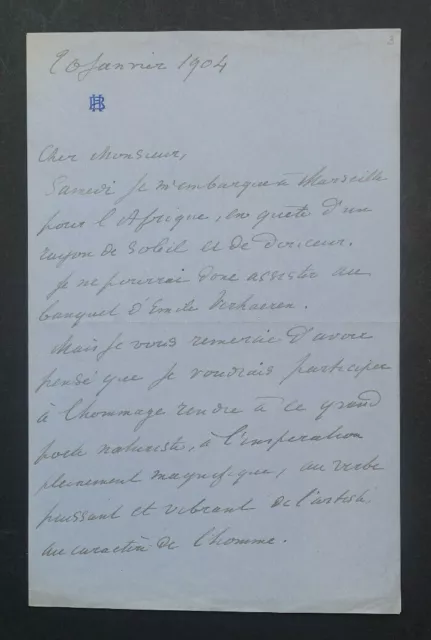 20 Janvier 1904
HB
Cher Monsieur,
Samedi je m'embarque à Marseille
pour l'Afrique, en quête d'un
rayon de Soleil et de douceur.
Je ne pourrai donc assister au
banquet d'Emile Verhaeren.
Mais je vous remercie d'avoir
pensé que je voudrais participer
à l'hommage rendre à ce grand
poète naturiste, à l'inspiration
pleinement magnifique, au verbe
puissant et vibrant de l'artiste
au caractère de l'homme.